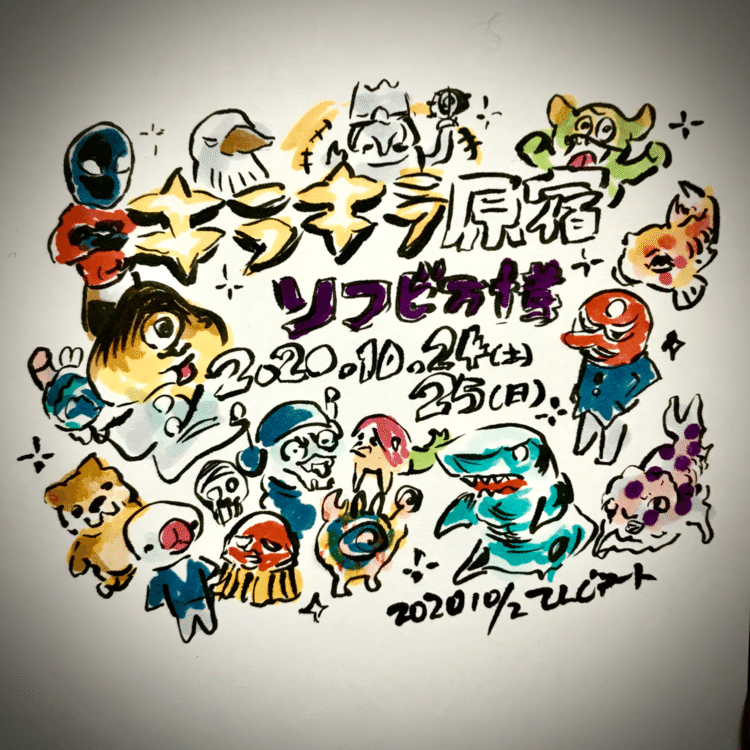 キラキラ原宿
ソフビ万博
2020.10.24(土)
25(日)
2020 10/2